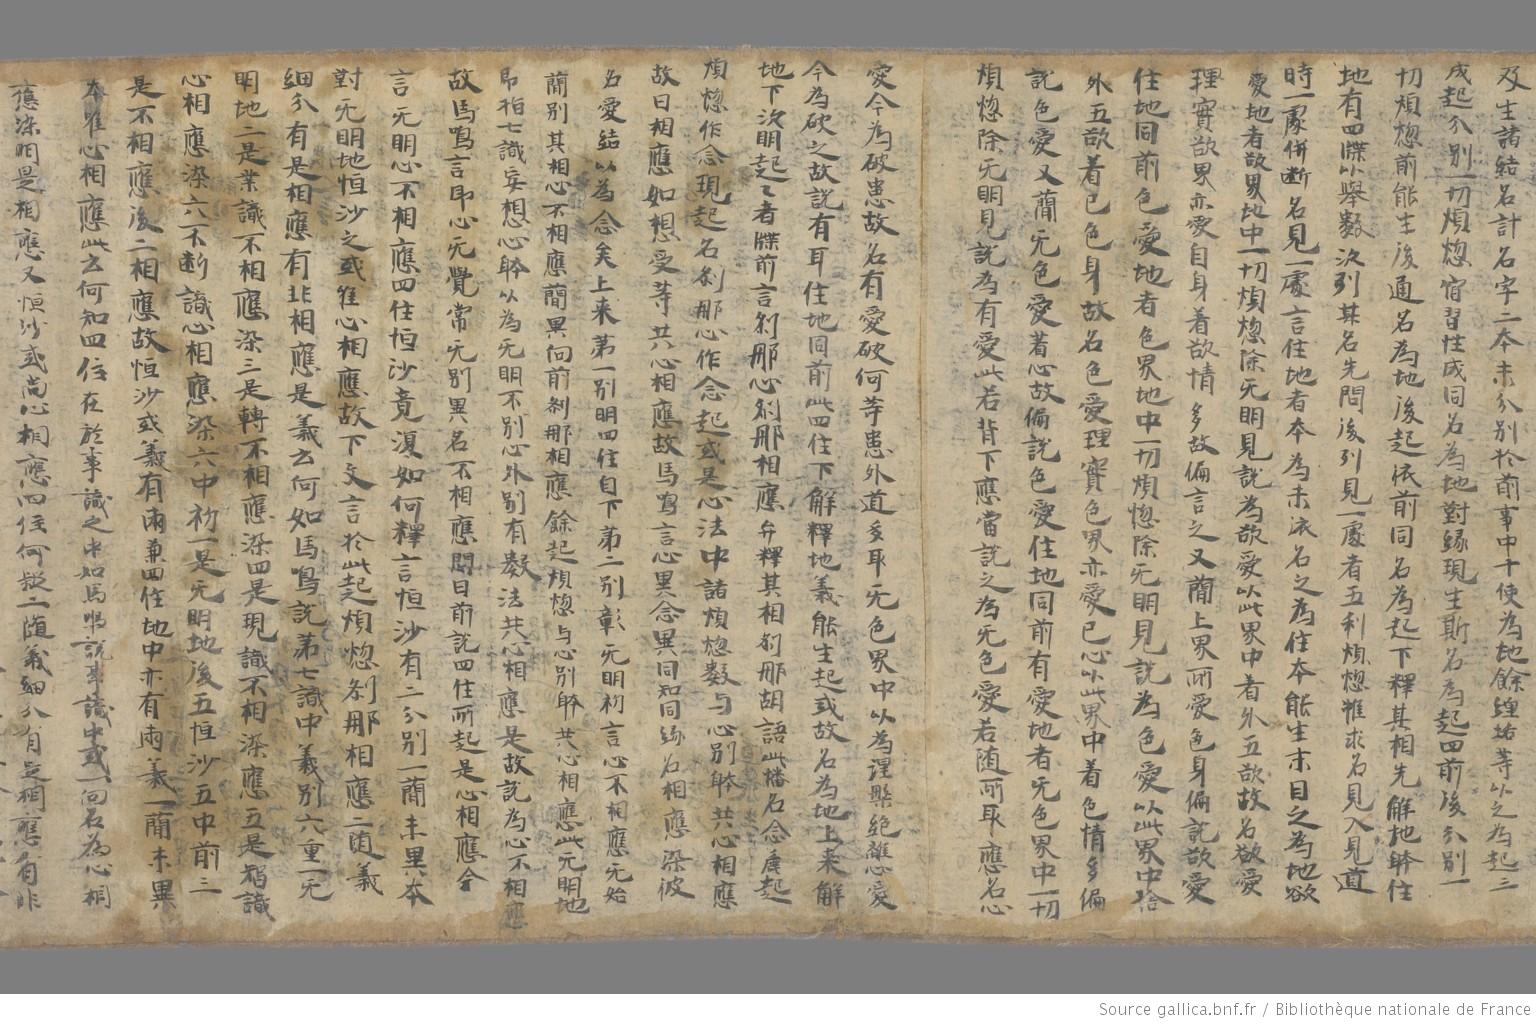 及生諸結名計名字二本末分別於前事中十使為地餘纏垢等以之為起三
成起分別一切煩惱宿習性成同名為地對緣現生斯名為起四前後分別一
切煩惱前能生後通名為地後起依前同名為起下釋其相先解地躰住
地有四牒以舉數次列其名先問後列見一處者五利煩惱推求名見入見道
時一處併斷名見一處言住地者本為末依名之為住本能生末目之為地欲
愛地者欲界地中一切煩惱除无明見說為欲愛以此界中着外五欲故名欲愛
理實欲界亦愛自身着欲情多故偏言之又簡上界所愛色身偏說欲愛
住地同前色愛地者色界地中一切煩惱除无明見說為色愛以此界中捨
外五欲着已色身故名色愛理實色界亦愛已心以此界中着色情多偏
說色愛又簡无色愛着心故偏說色愛住地同前有愛地者无色界中一切
煩惱除无明見說為有愛此若背下應當說之為无色愛若随所取應名心
愛今為破患故名有愛破何等患外道多取无色界中以為涅槃絕離心愛
今為破之故說有耳住地同前此四住下解釋地義能生起或故名為地上来解
地下次明起々者牒前言刹那心刹那相應弁釋其相刹那胡語此幡名念
煩惱作念現起名刹那心作念起或是心法中諸煩惱數与心別躰共心相應
故曰相應如想受等共心相應故馬鳴言心異念異同知同緣名相應染彼
名愛結以為念矣上来第一別明四住自下第二別彰无明初言心不相應无始
簡別其相心不相應簡異向前刹那相應餘起煩惱与心別躰共心相應此无明地
即指七識妄想心躰以為无明不別心外別有數法共心相應是故說為心不相應
故馬鳴言即心无覺常无別異名不相應問曰前說四住所起是心相應今
言无明心不相應四住恒沙竟復如何釋言恒沙有二分別一簡末異本
對无明地恒沙之或唯心相應故下文言於此起煩惱刹那相應二随義
細分有是相應有非相應是義云何如馬鳴說第七識中義別六重一无
明地二是業識不相應染三是轉不相應染四是現識不相染應五是智識
心相應染六不斷識心相應染六中初一是无明地後五恒沙五中前三
是不相應後二相應故恒沙或義有兩兼四住地中亦有兩義一簡末異
本唯心相應此云何知四住在於事識之中如馬鳴說事識中或一向名為心相
應染明是相應又恒沙或尚心相應四住何疑二随義細分有是相應有非